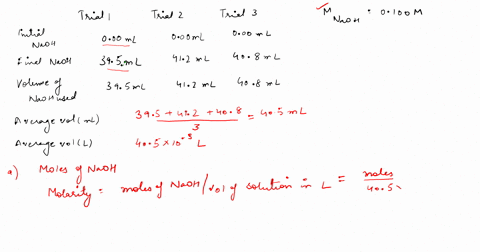 Trial 1 Trial 2 Trial 3 ✓M NaOH = 0.100 M
Initial NaOH 0.00 mL 0.00 mL 0.00 mL
Final NaOH 39.5 mL 41.2 mL 40.8 mL
Volume of NaOH used 39.5 mL 41.2 mL 40.8 mL
Average vol (mL) 39.5 + 41.2 + 40.8 / 3 = 40.5 mL
Average vol (L) 40.5 × 10⁻³ L
a) Moles of NaOH
Molarity = moles of NaOH / vol of solution in L = moles / 40.5